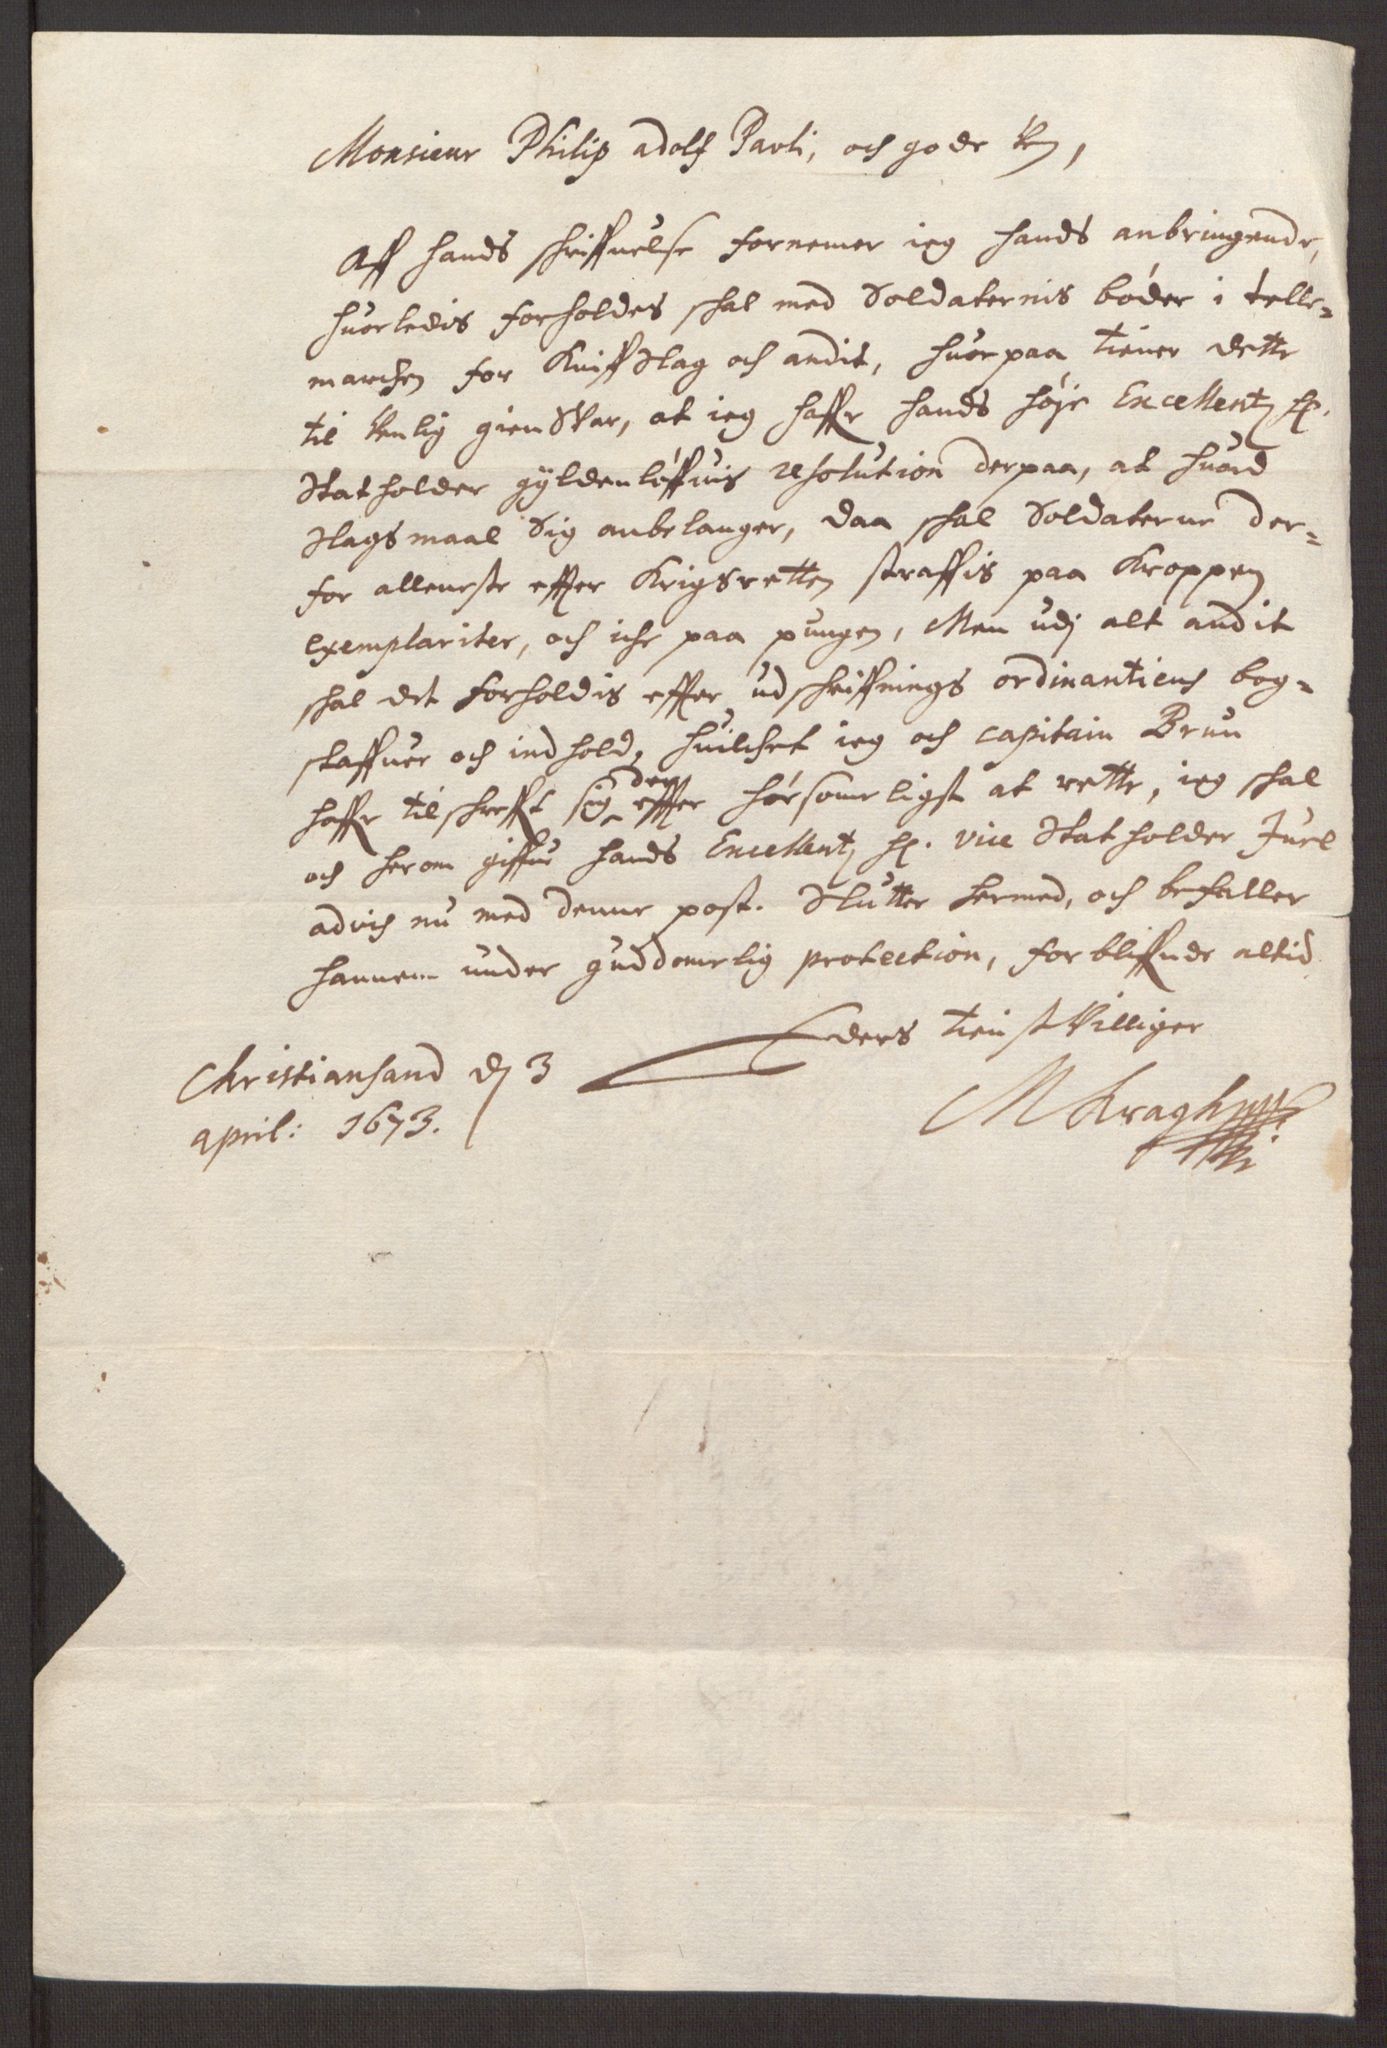 Monsieur Philip adolf Pavli, och gode Ven,
Aff hands schriffuelse fornemer ieg hands anbringende,
huorledis forholdes skal med Soldaternis bøder i telle=
marchen for Kniff Slag och andit, huor paa tiener dette
til Venlig gien Svar, at ieg haffr hands høje Excellentz H.
Statholder gÿldenløffuis resolution derpaa, at huad
Slagsmaal Sig anbelanger, daa skal Soldaterne der=
for alleneste effter Krigsretten straffis paa Kroppen
exemplariter, och iche paa pungen, Men udj alt andit
skal det forholdis effter udschriffnings ordinantiens bog=
staffuer och indhold, huilchet ieg och capitain Brun
haffr tilschrefft sig der effter hørsomeligst at rette, ieg skal
och herom giffue hands Excellentz H. vice Statholder Juel
advis nu med denne post. Slutter hermed, och befaller
hannem under guddomelig protection, forbliffuede altid
Eders tienstVilliger
M Kragh
Christiansand d 3
april: 1673.